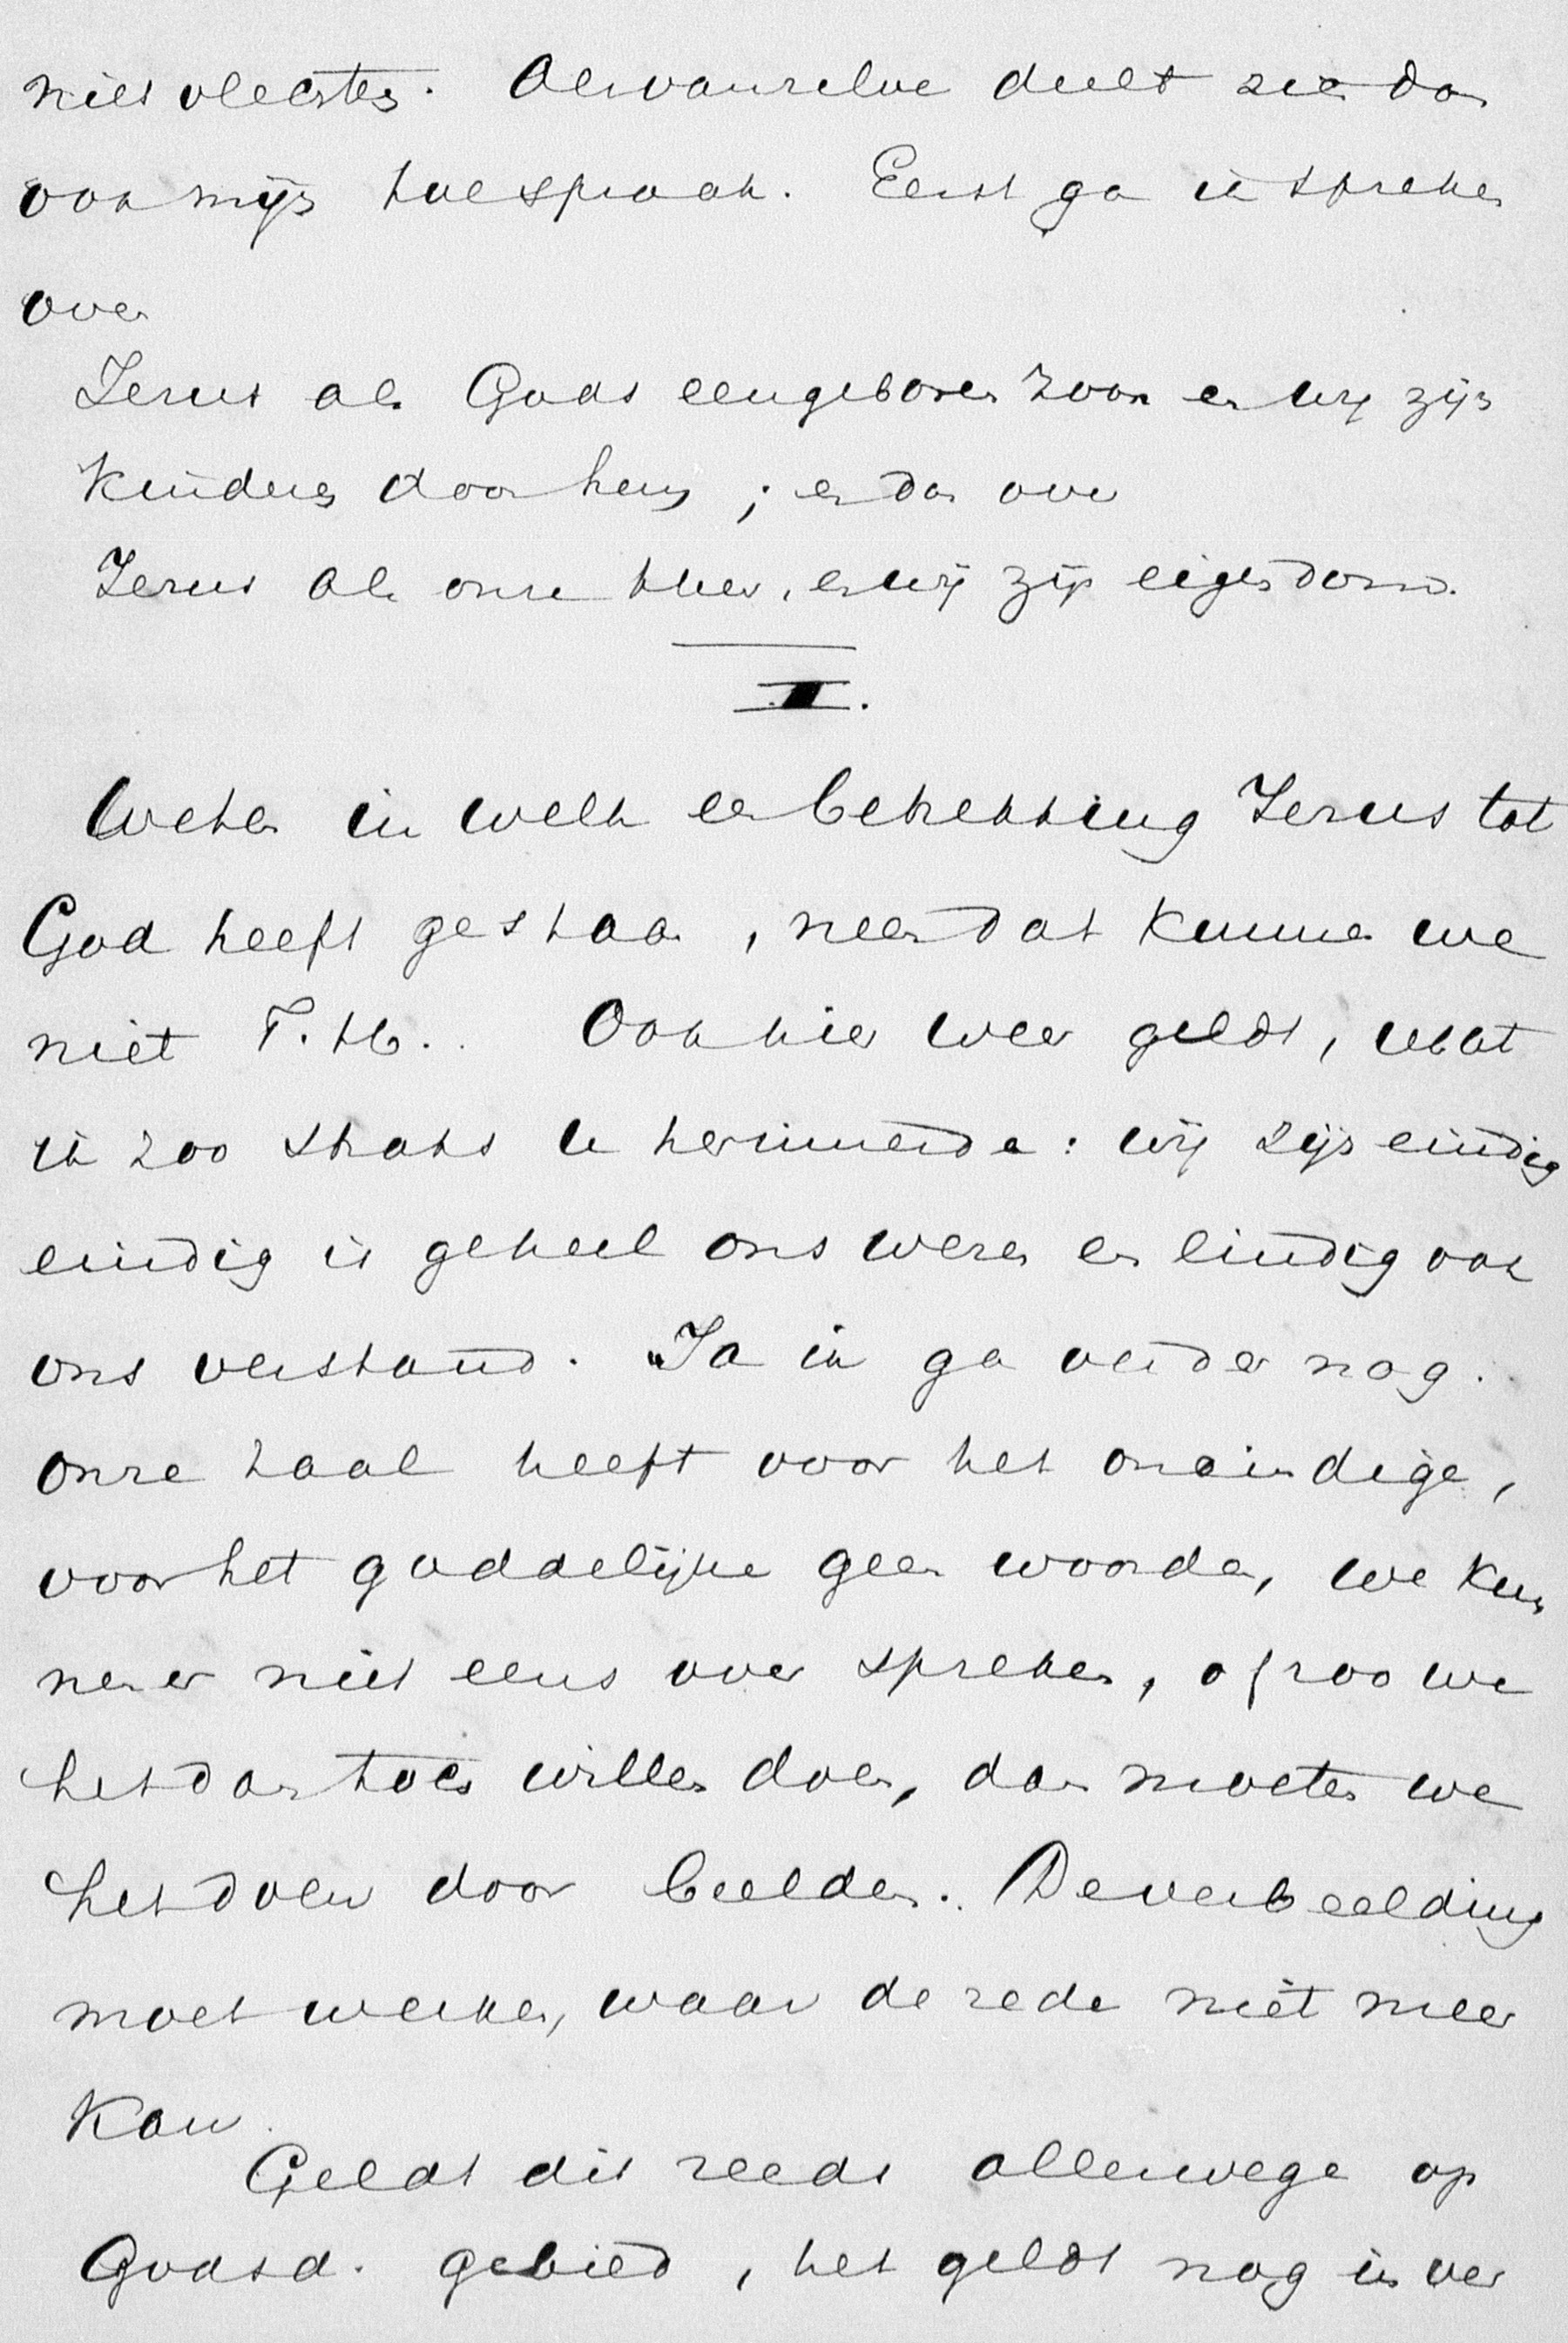 niet slechts. Alsvanzelve deelt zich dan
ook mijn toespraak. Eerst ga ik spreken
over
Jezus als Gods eengeboren Zoon en wij zijn
kinderen door hem; en dan over
Jezus als onze Heer, en wij zijn eigendom.
I.
Weten in welk een betrekking Jezus tot
God heeft gestaan, neen dat kunnen we
niet T. H.. Ook hier weer geldt, wat
ik zoo straks u herinnerde: wij zijn eindig
eindig is geheel ons wezen en eindig ook
ons verstand. Ja ik ga verder nog.
Onze taal heeft voor het oneindige,
voor het goddelijke geen woorden, we kun
nen er niet eens over spreken, of zoo we
het dan toch willen doen, dan moeten we
het doen door beelden. De verbeelding
moet werken, waar de rede niet meer
kan.
Geldt dit reeds allerwege op
Godsd. gebied, het geldt nog in ver